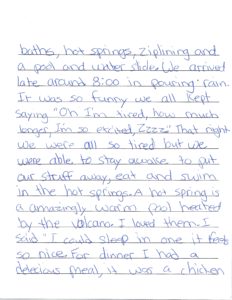 baths, hot springs, ziplining and
a pool and water slide. We arrived
late around 8:00 in pouring rain.
It was so funny we all kept
saying "Oh I'm tired, how much
longer, I'm so excited, Zzzz." That night
we were all so tired but we
were able to stay awake to put
our stuff away, eat and swim
in the hot springs. A hot spring is
a amazingly warm pool heated
by the volcano. I loved them. I
said "I could sleep in one it feels
so nice. For dinner I had a
delecious meal, it was a chicken